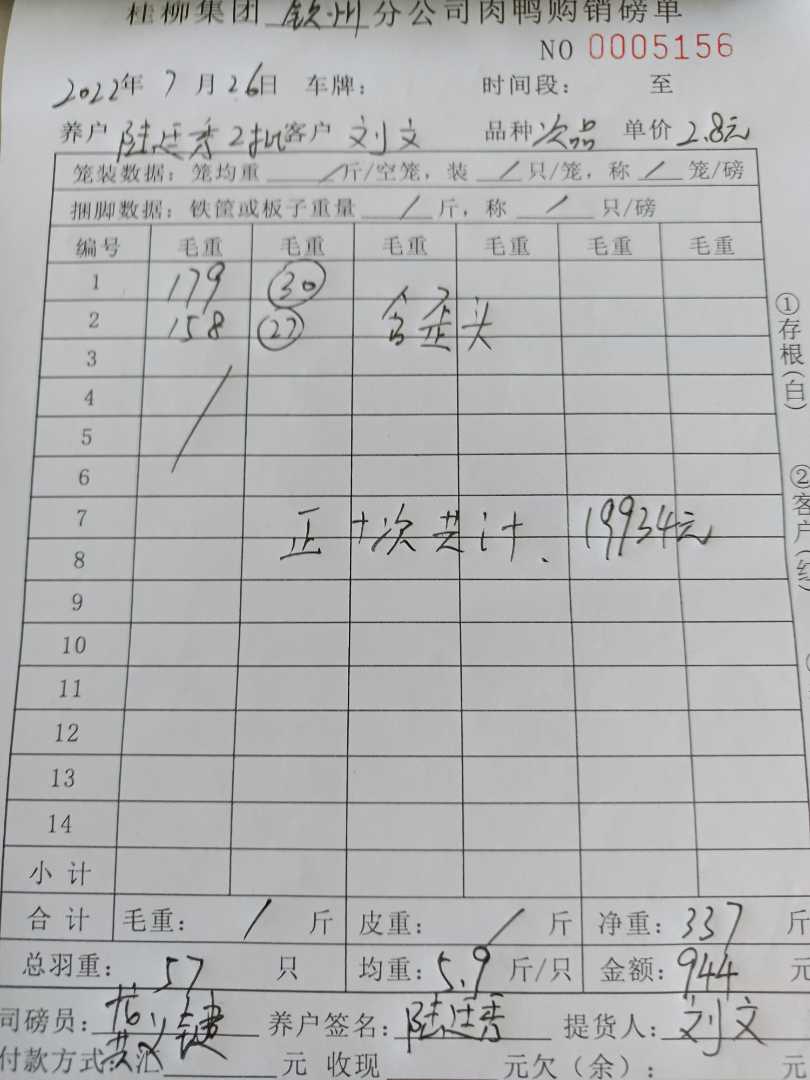 桂柳集团 钦州 分公司肉鸭购销磅单
NO 0005156
2022年 7月26日 车牌： 时间段： 至
养户 陆廷秀2批 客户 刘文 品种 次品 单价 2.8元
笼装数据：笼均重 / 斤/空笼，装 / 只/笼，称 / 笼/磅
捆脚数据：铁筐或板子重量 / 斤，称 / 只/磅
编号 毛重 毛重 毛重 毛重 毛重 毛重
1 179 30
2 158 27 含歪头
3
4 /
5
6
7 正+次共计、19934元
8
9
10
11
12
13
14
小计
合计 毛重： / 斤 皮重： / 斤 净重：337 斤
总羽重：57 只 均重：5.9 斤/只 金额：944 元
司磅员： 养户签名：陆廷秀 提货人：刘文
付款方式：汇 元 收现 元欠（余）： 元
①存根(白)
②客户(红)